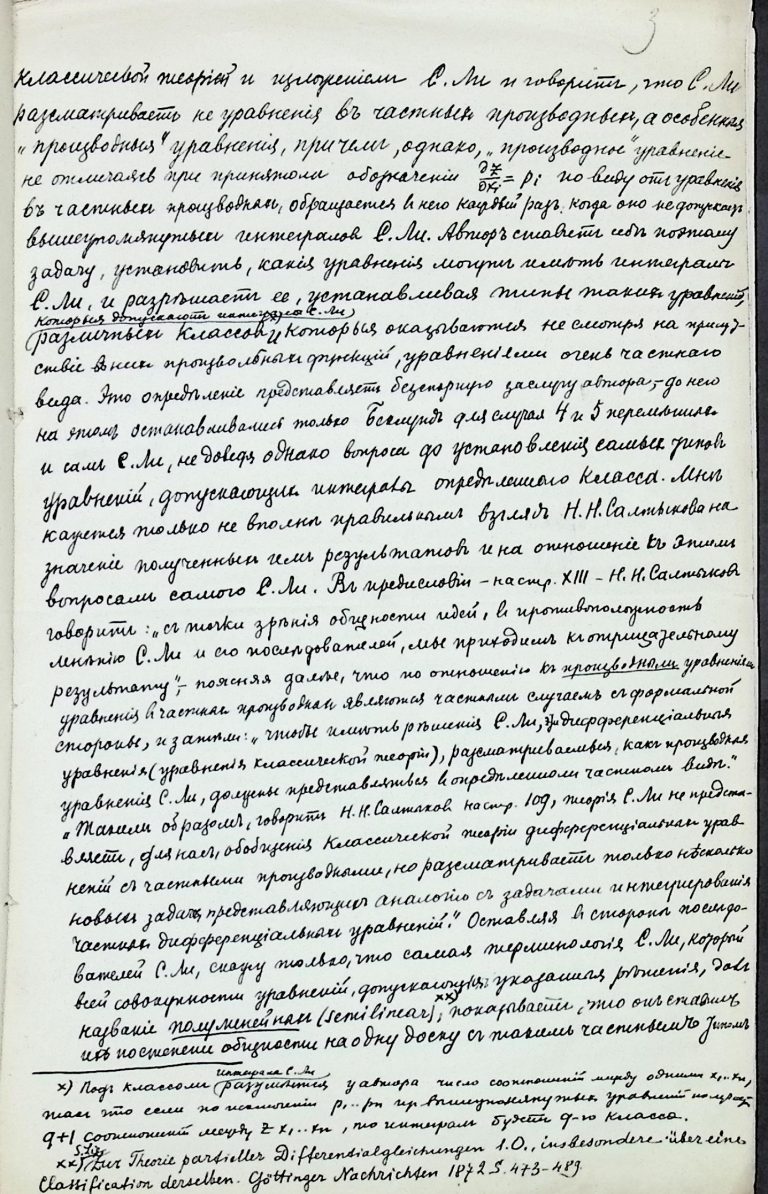 3
классической теорiей и изложенiем С. Ли и говоритъ, что С. Ли
разсматриваетъ не уравненiя въ частныхъ производныхъ, а особенныя
„производныя" уравненiя, причемъ, однако, „производное" уравненiе
не отличаясь при принятомъ обозначенiи ∂z/∂xi = pi по виду отъ уравненiя
въ частныхъ производныхъ, обращается въ него каждый разъ, когда оно не допускаетъ
вышеупомянутыхъ интеграловъ С. Ли. Авторъ ставитъ себѣ поэтому
задачу, установить, какiя уравненiя могутъ имѣть интегралы
С. Ли, и разрѣшаетъ ее, устанавливая типы такихъ уравненiй,
которыя допускаютъ интегралы С. Ли
различныхъ классовъ x) которыя оказываются не смотря на присут-
ствiе въ нихъ произвольныхъ функцiй, уравненiями очень частнаго
вида. Это опредѣленiе представляетъ безспорную заслугу автора, – до него
на этомъ останавливались только Беклундъ для случая 4 и 5 перемѣнныхъ
и самъ С. Ли, не доведя однако вопроса до установленiя самыхъ типовъ
уравненiй, допускающихъ интегралы опредѣленнаго класса. Мнѣ
кажется только не вполнѣ правильнымъ взглядъ Н. Н. Салтыкова на
значенiе полученныхъ имъ результатовъ и на отношенiе къ этимъ
вопросамъ самого С. Ли. Въ предисловiи – на стр. XIII – Н. Н. Салтыковъ
говоритъ: „съ точки зрѣнiя общности идей, въ противоположность
мнѣнiю С. Ли и его послѣдователей, мы приходимъ къ отрицательному
результату", – поясняя далѣе, что по отношенiю къ производнымъ уравненiямъ
уравненiя въ частныхъ производныхъ являются частнымъ случаемъ съ формальной
стороны, и затѣмъ: „чтобы имѣть рѣшенiя С. Ли, дифференцiальныя
уравненiя (уравненiя классической теорiи), разсматриваемыя, какъ производныя
уравненiя С. Ли, должны представляться въ опредѣленномъ частномъ видѣ."
„Такимъ образомъ, говоритъ Н. Н. Салтыковъ на стр. 109, теорiя С. Ли не предста-
вляетъ, для насъ, обобщенiя классической теорiи дифференцiальныхъ урав
ненiй съ частными производными, но разсматриваетъ только нѣсколько
новыхъ задачъ, представляющихъ аналогiю съ задачами интегрированiя
частныхъ дифференцiальныхъ уравненiй." Оставляя въ сторонѣ послѣдо-
вателей С. Ли, скажу только, что самая терминологiя С. Ли, который
всей совокупности уравненiй, допускающихъ указанныя рѣшенiя, далъ
названiе полулинейныхъ (semilinear) xx), показываетъ, что онъ ставилъ
ихъ по степени общности на одну доску съ такимъ частнымъ типомъ
x) Подъ классомъ интеграла С. Ли разумѣется у автора число соотношенiй между одними x1..xn,
такъ что если по исключенiи p1..pn изъ вышеупомянутыхъ уравненiй получ.
q+1 соотношенiй между z x1...xn, то интегралъ будетъ q-го класса.
xx) S. Lie Zur Theorie partieller Differentialgleichungen 1.O., insbesondere über eine
Classification derselben. Göttinger Nachrichten 1872 S. 473–489.